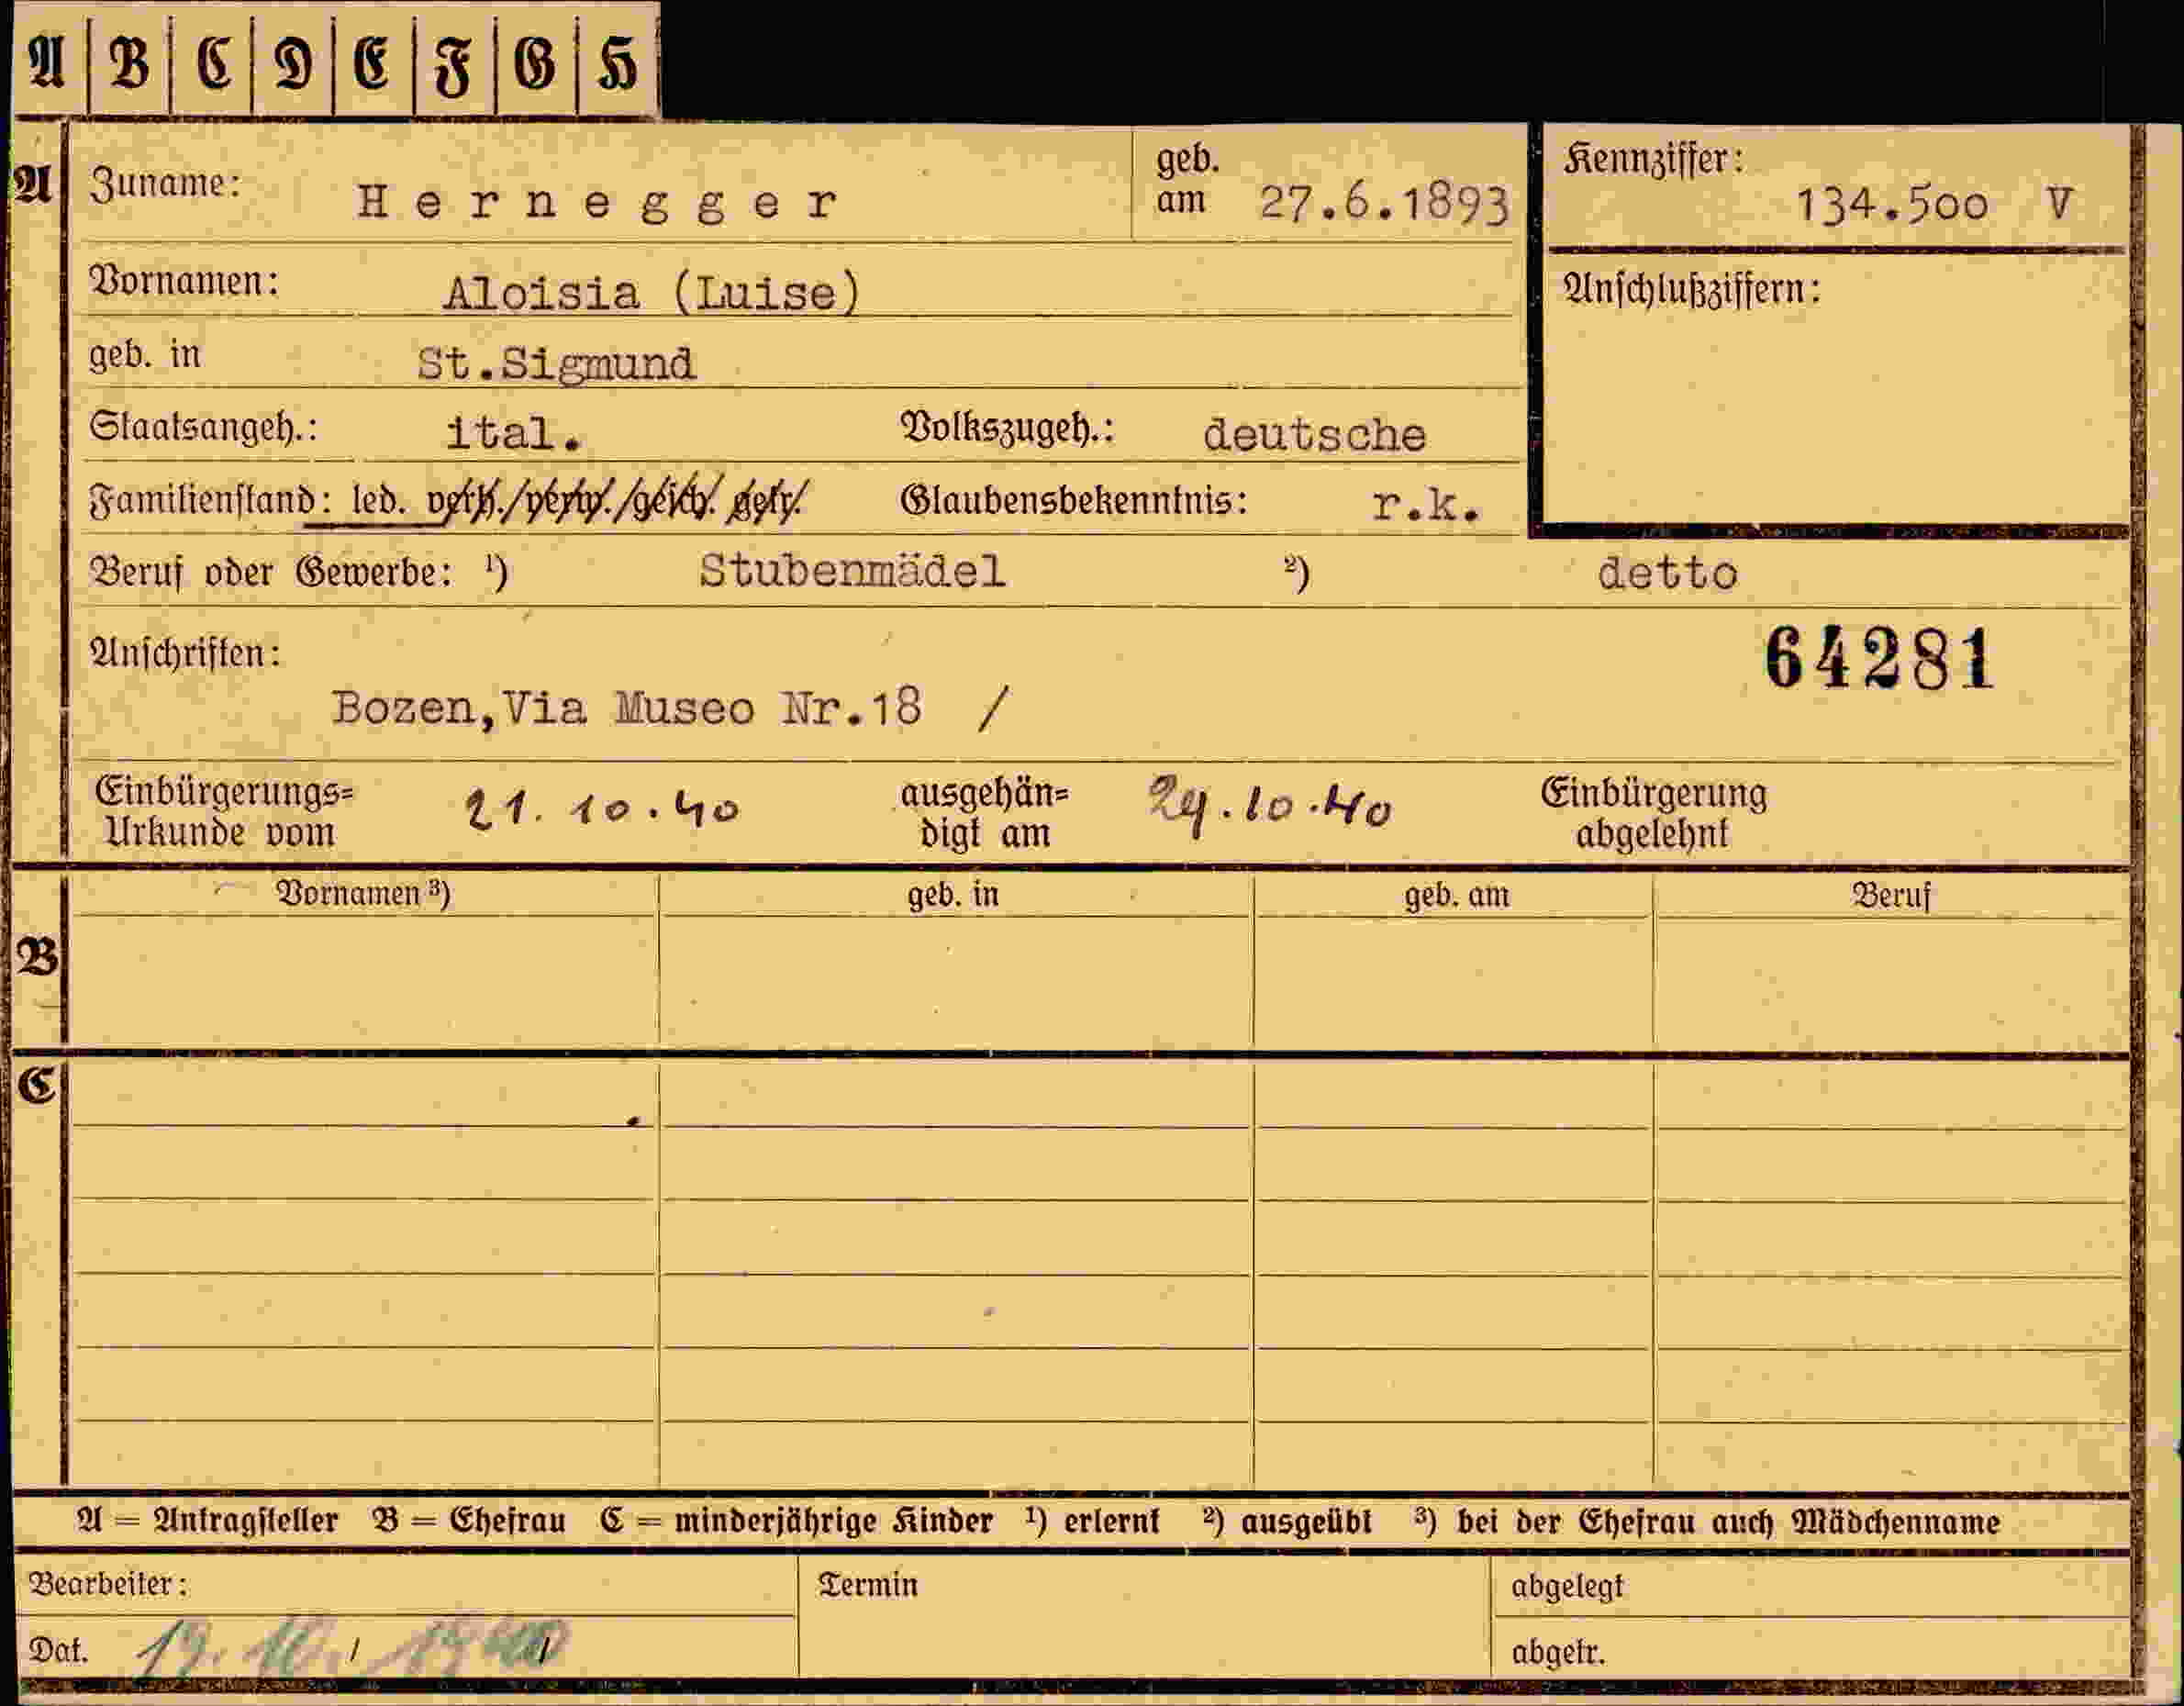 A B C D E F G H
A Zuname: Hernegger geb. am 27.6.1893 Kennziffer: 134.500 V
Vornamen: Aloisia (Luise) Anschlußziffern:
geb. in St.Sigmund
Staatsangeh.: ital. Volkszugeh.: deutsche
Familienstand: led. verh./verw./gesch. getr. Glaubensbekenntnis: r.k.
Beruf oder Gewerbe: ¹) Stubenmädel ²) detto
Anschriften: 64281
Bozen,Via Museo Nr.18 /
Einbürgerungs= Urkunde vom 21.10.40 ausgehän= digt am 29.10.40 Einbürgerung abgelehnt
Vornamen ³) geb. in geb. am Beruf
B
C
A = Antragsteller B = Ehefrau C = minderjährige Kinder ¹) erlernt ²) ausgeübt ³) bei der Ehefrau auch Mädchenname
Bearbeiter: Termin abgelegt
Dat. abgetr.